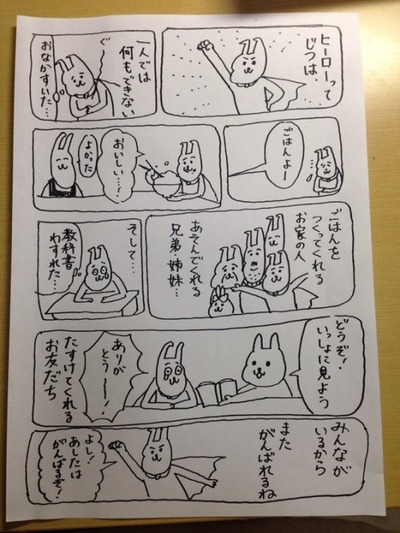 ヒーローって
じつは、
一人では
何もできない
ぐ〜
おなかすいた…
ごはんよー
おいしい…!
よかった
ごはんを
つくってくれる
お家の人
あそんでくれる
兄弟・姉妹…
そして…
教科書
わすれた…
どうぞ!
いっしょに見よう
ありが
とう〜!
たすけてくれる
お友だち
みんなが
いるから
また
がんばれるね
よし!
あしたは
がんばるぞ!